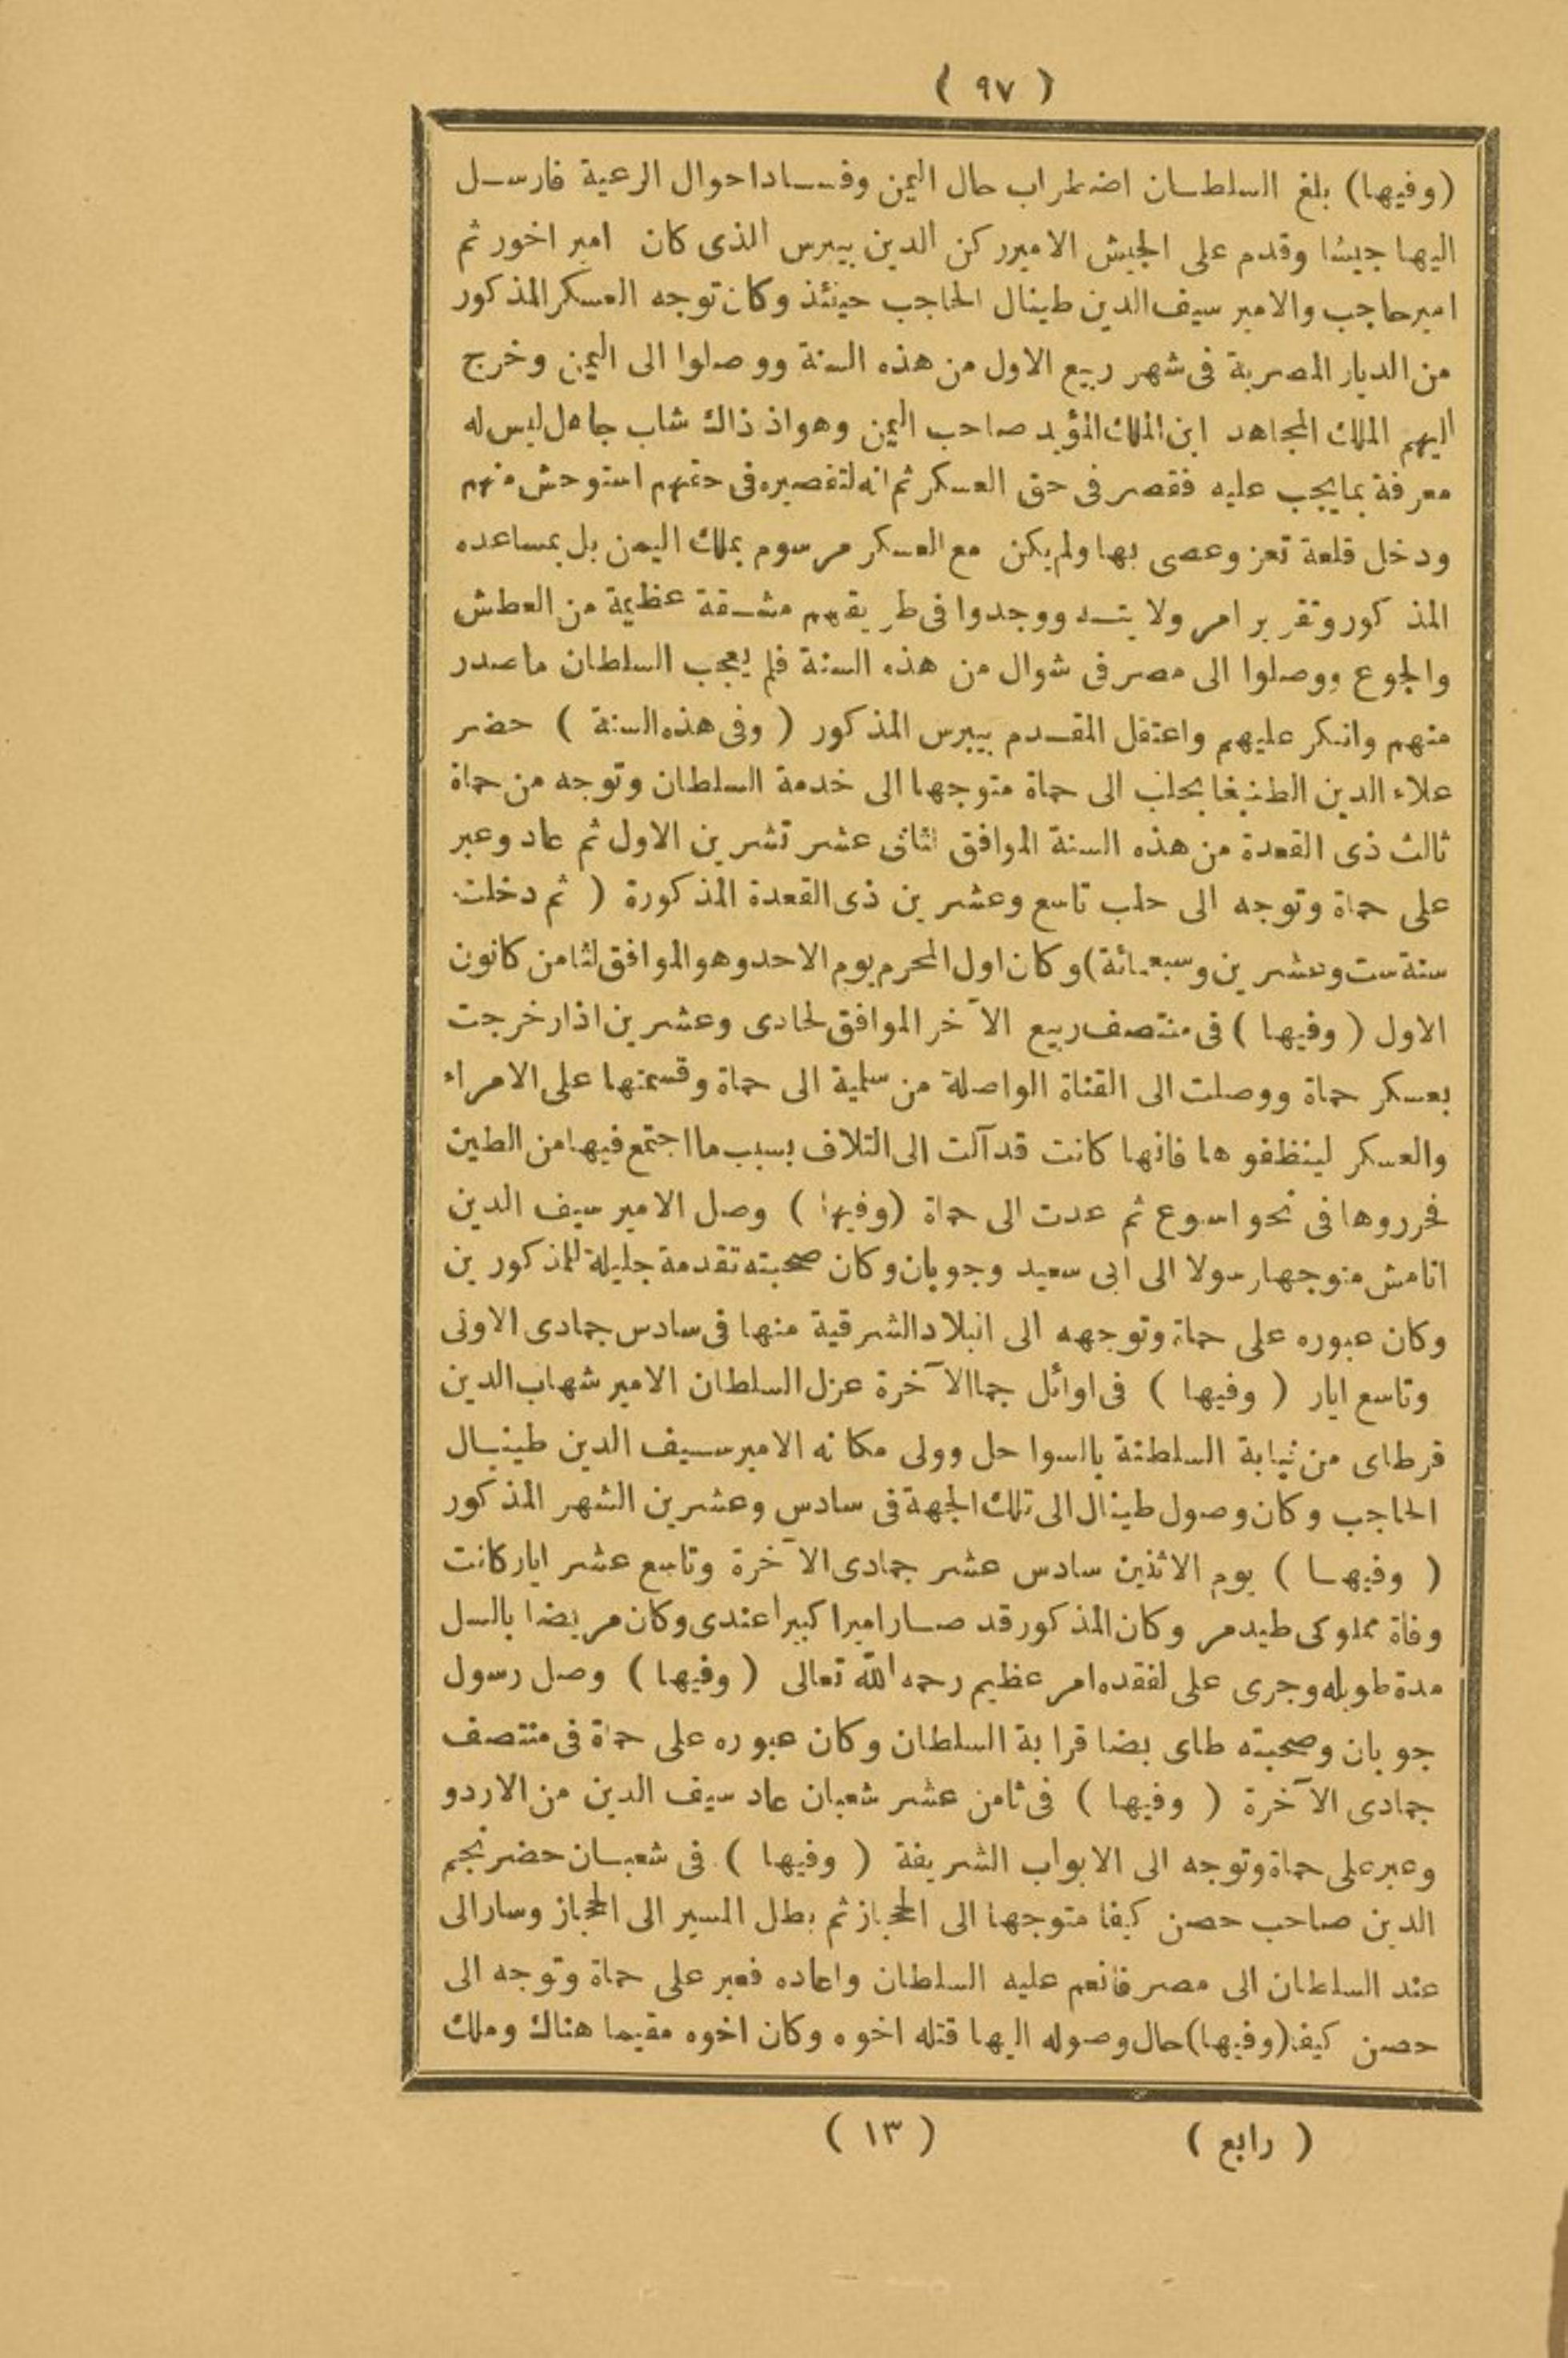 ( ٩٧ )
(وفيها) بلغ السلطان اضطراب حال اليمن وفساد احوال الرعية فارسل
اليها جيشا وقدم على الجيش الامير ركن الدين بيبرس الذى كان امير اخور ثم
امير حاجب والامير سيف الدين طينال الحاجب حينئذ وكان توجه العسكر المذكور
من الديار المصرية فى شهر ربيع الاول من هذه السنة ووصلوا الى اليمن وخرج
اليهم الملك المجاهد ابن الملك المؤيد صاحب اليمن وهو اذ ذاك شاب جاهل ليس له
معرفة بما يجب عليه فقصر فى حق العسكر ثم انه لتقصيره فى حقهم استوحش منهم
ودخل قلعة تعز وعصى بها ولم يكن مع العسكر مرسوم بملك اليمن بل بمساعده
المذكور وتقرير امر ولايته ووجدوا فى طريقهم مشقة عظيمة من العطش
والجوع ووصلوا الى مصر فى شوال من هذه السنة فلم يعجب السلطان ما صدر
منهم وانكر عليهم واعتقل المقدم بيبرس المذكور ( وفى هذه السنة ) حضر
علاء الدين الطنبغا بحلب الى حماة متوجها الى خدمة السلطان وتوجه من حماة
ثالث ذى القعدة من هذه السنة الموافق لثانى عشر تشرين الاول ثم عاد وعبر
على حماة وتوجه الى حلب تاسع وعشرين ذى القعدة المذكورة ( ثم دخلت
سنة ست وعشرين وسبعمائة) وكان اول المحرم يوم الاحد وهو الموافق لثامن كانون
الاول ( وفيها ) فى منتصف ربيع الآخر الموافق لحادى وعشرين اذار خرجت
بعسكر حماة ووصلت الى القناة الواصلة من سلمية الى حماة وقسمتها على الامراء
والعسكر لينظفوها فانها كانت قد آلت الى التلاف بسبب ما اجتمع فيها من الطين
فحرروها فى نحو اسبوع ثم عدت الى حماة (وفيها ) وصل الامير سيف الدين
اتامش متوجها رسولا الى ابى سعيد وجوبان وكان صحبته تقدمة جليلة للمذكورين
وكان عبوره على حماة وتوجهه الى البلاد الشرقية منها فى سادس جمادى الاولى
وتاسع ايار ( وفيها ) فى اوائل جما الآخرة عزل السلطان الامير شهاب الدين
قرطاى من نيابة السلطنة بالسواحل وولى مكانه الامير سيف الدين طينال
الحاجب وكان وصول طينال الى تلك الجهة فى سادس وعشرين الشهر المذكور
( وفيها ) يوم الاثنين سادس عشر جمادى الآخرة وتاسع عشر ايار كانت
وفاة مملوكى طيدمر وكان المذكور قد صار اميرا كبيرا عندى وكان مريضا بالسل
مدة طويله وجرى على لفقده امر عظيم رحمه الله تعالى ( وفيها ) وصل رسول
جوبان وصحبته طاى بضا قرابة السلطان وكان عبوره على حماة فى منتصف
جمادى الآخرة ( وفيها ) فى ثامن عشر شعبان عاد سيف الدين من الاردو
وعبر على حماة وتوجه الى الابواب الشريفة ( وفيها ) فى شعبان حضر نجم
الدين صاحب حصن كيفا متوجها الى الحجاز ثم بطل المسير الى الحجاز وسار الى
عند السلطان الى مصر فانعم عليه السلطان واعاده فعبر على حماة وتوجه الى
حصن كيفا (وفيها) حال وصوله اليها قتله اخوه وكان اخوه مقيما هناك وملك
( رابع ) ( ١٣ )